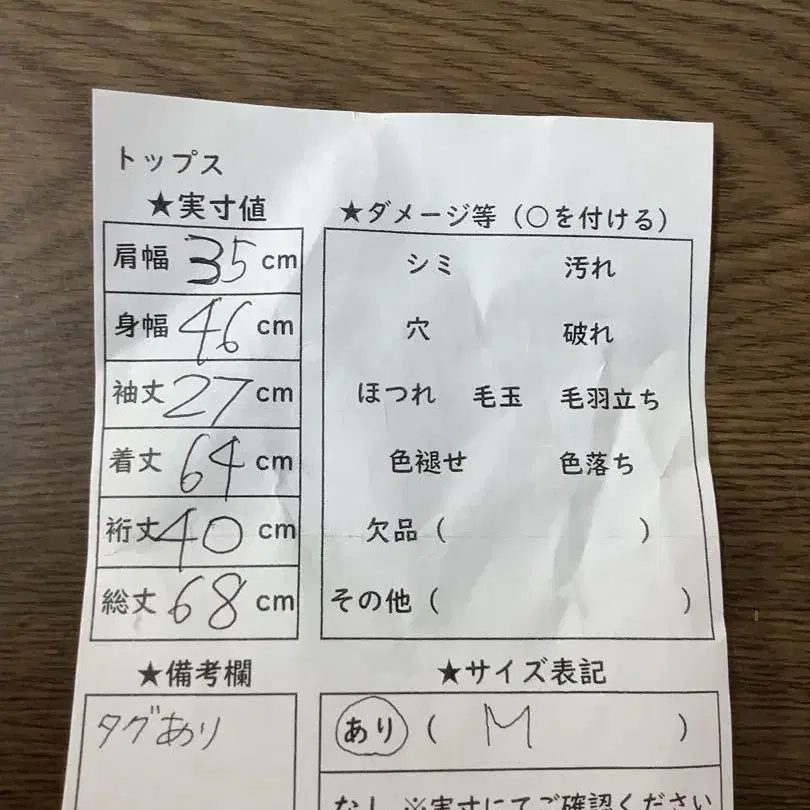 トップス
★実寸値
肩幅 35 cm
身幅 46 cm
袖丈 27 cm
着丈 64 cm
裄丈 40 cm
総丈 68 cm
★ダメージ等（○を付ける）
シミ 汚れ
穴 破れ
ほつれ 毛玉 毛羽立ち
色褪せ 色落ち
欠品（ ）
その他（ ）
★備考欄
タグあり
★サイズ表記
あり（ M ）
なし ※実寸にてご確認ください